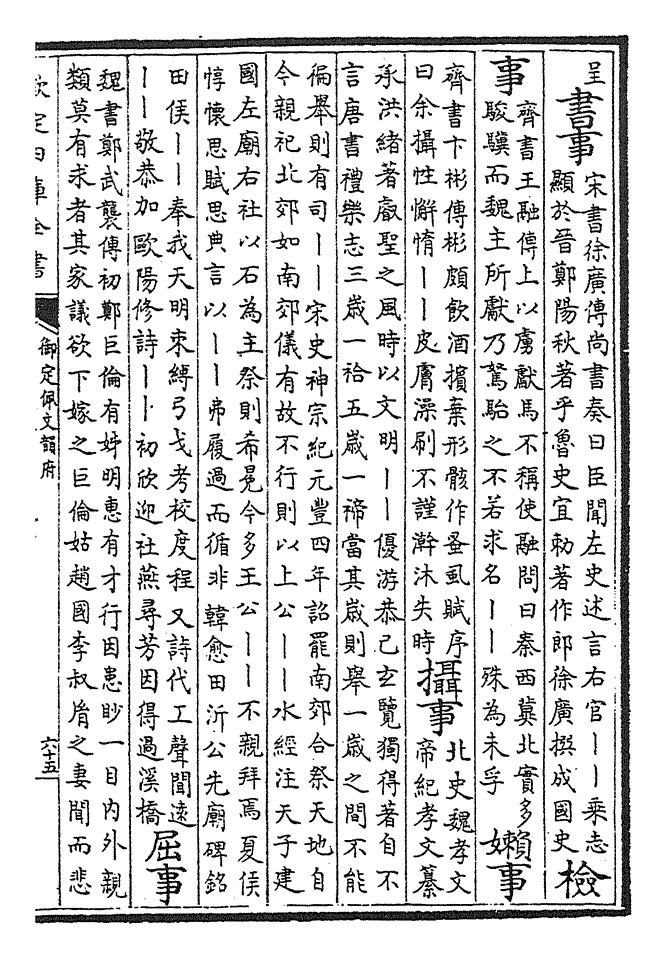 呈
書事
宋書徐廣傳尚書奏曰臣聞左史述言右官丨丨乘志
顯於晉鄭陽秋著乎魯史宜勅著作郎徐廣撰成國史
檢
事
齊書王融傳上以虜獻馬不稱使融問曰秦西莫北實多
駿驥而魏主所獻乃駑駘之不若求名丨丨殊為未孚
嬾事
齊書卞彬傳彬頗飲酒擯棄形骸作蚤虱賦序
曰余攝性懈惰丨丨皮膚澡刷不謹澣沐失時
攝事
北史魏孝文
帝紀孝文纂
承洪緒著叡聖之風時以文明丨丨優游恭己玄覽獨得著自不
言唐書禮樂志三歲一祫五歲一禘當其歲則舉一歲之間不能
徧舉則有司丨丨宋史神宗紀元豐四年詔罷南郊合祭天地自
今親祀北郊如南郊儀有故不行則以上公丨丨水經注天子建
國左廟右社以石為主祭則希冕今多王公丨丨不親拜焉夏侯
惇懷思賦思典言以丨丨弗履過而循非韓愈田沂公先廟碑銘
田侯丨丨奉我天明束縛弓戈考校度程又詩代工聲聞遠
丨丨敬恭加歐陽修詩丨丨初欣迎社燕尋芳因得過溪橋
屈事
魏書鄭武襲傳初鄭巨倫有姊明惠有才行因患眇一目內外親
類莫有求者其家議欲下嫁之巨倫姑趙國李叔胤之妻聞而悲
欽定四庫全書
御定佩文韻府
六十五